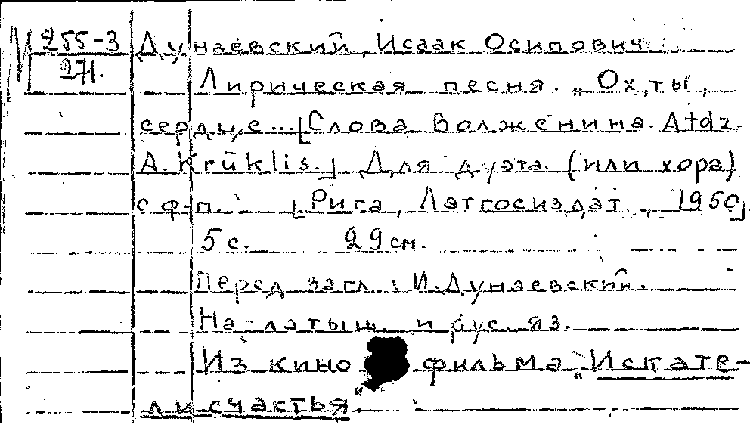 М 255-3 Дунаевский, Исаак Осипович
271. Лирическая песня. „Ох, ты,
сердце... [Слова Волженина. Atdz.
A. Krūklis.] Для дуэта (или хора)
с ф-п. [Рига, Латгосиздат, 1950]
5 с. 29 см.
Перед загл.: И. Дунаевский.
На латыш. и рус. яз.
Из кинофильма „Искате-
ли счастья"